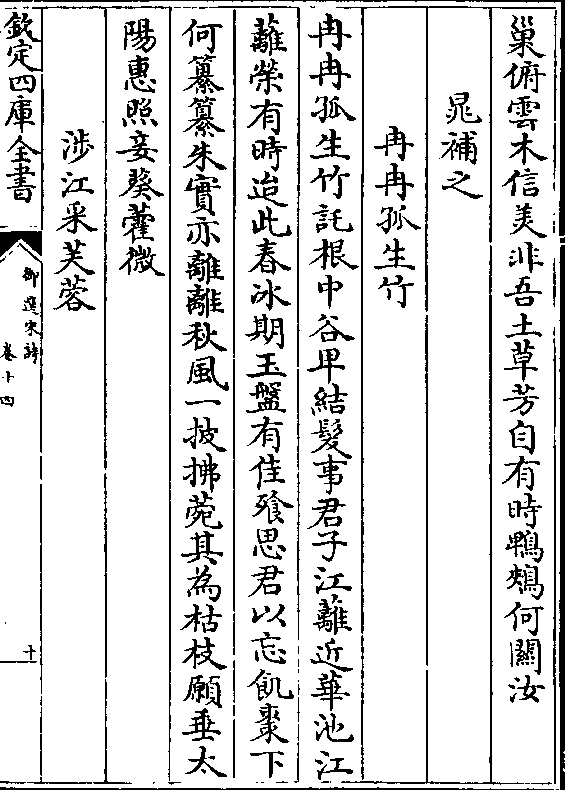 巢俯雲木信美非吾土草芳自有時鶗鴂何關汝
晁補之
冉冉孤生竹
冉冉孤生竹託根中谷卑結髪事君子江蘺近華池江
蘺榮有時迨此春冰期玉盤有佳飱思君以忘飢棗下
何纂纂朱實亦離離秋風一披拂菀其為枯枝願垂太
陽惠照妾葵藿微
涉江采芙蓉
欽定四庫全書
御選宋詩
卷十四
十